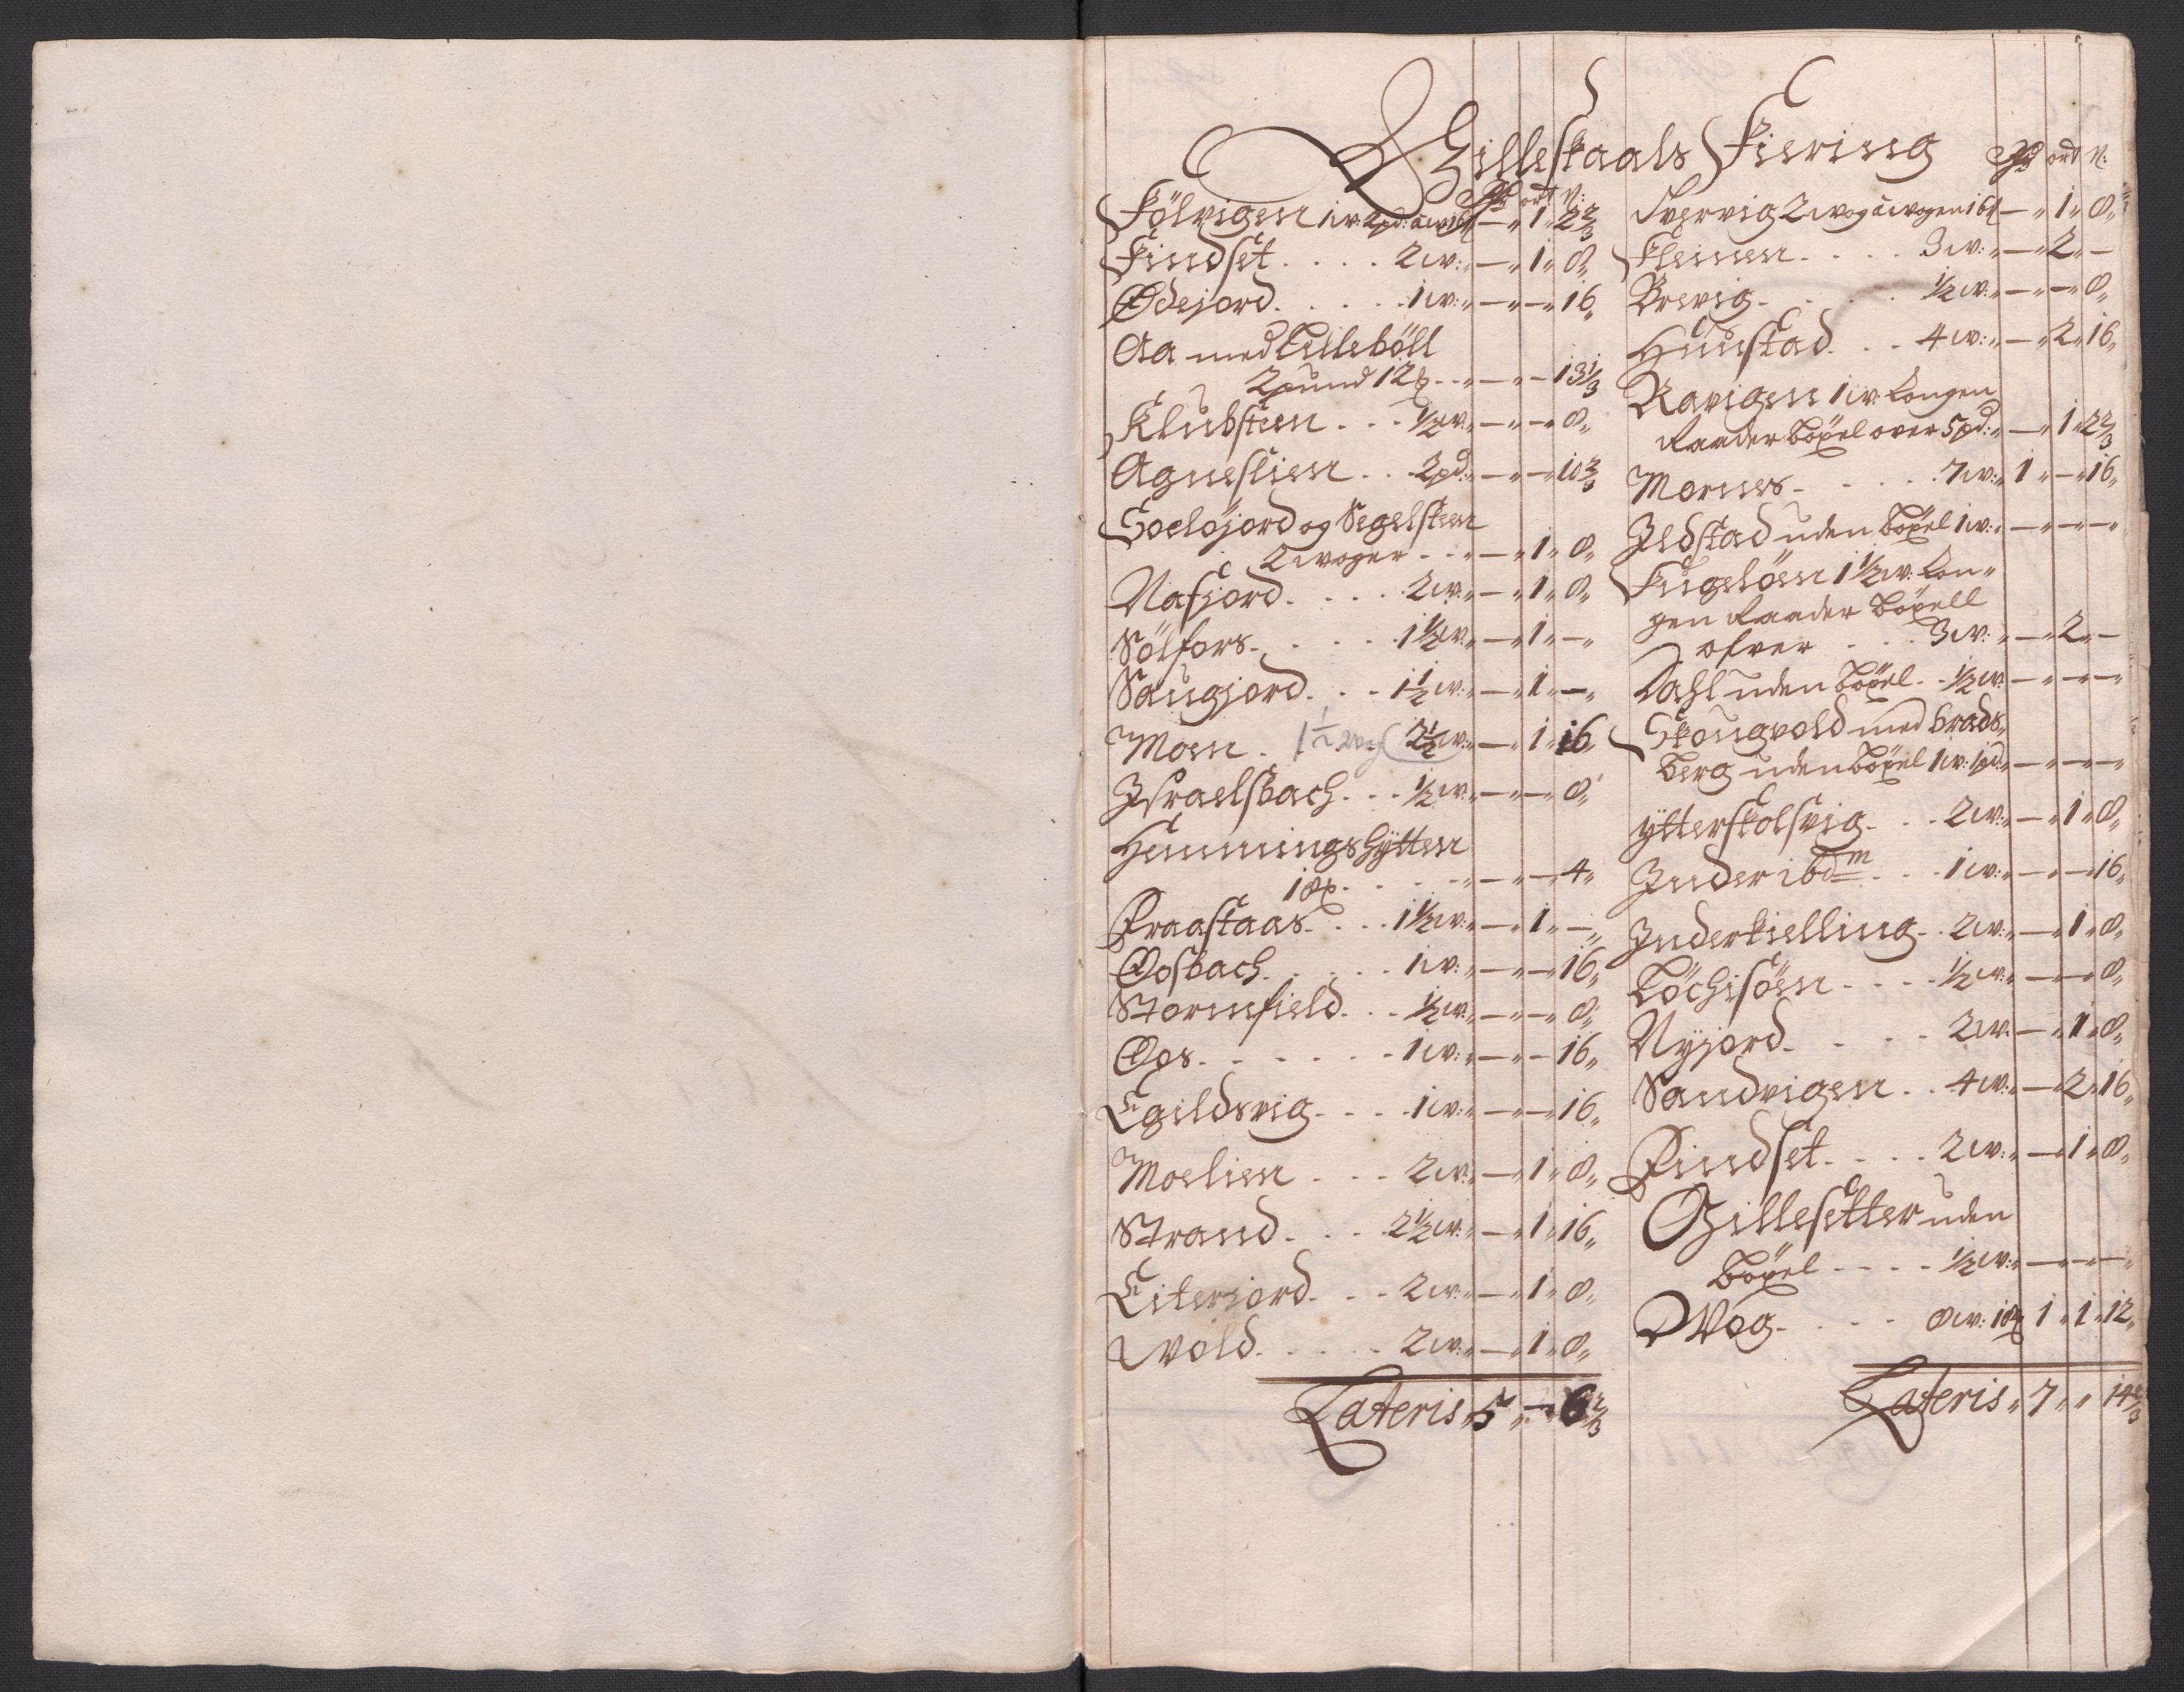 Gilleskaals Fiering
Rdr ort ß:
Fölvigen 1w: 2pd: a w: 16ß — „ 1 „ 2 2/3
Findset .... 2w: „ — „ 1 „ 8 „
Ødejord ..... 1w: „ — „ — 16 „
Aa med Lilleböll
2pund 12 — „ — „ — 13 1/3
Klubsteen ... 1/2w: „ — „ — 8 „
Agneslien .. 2pd: — „ — 10 2/3
Soeløjord og Segelsteen
2woger .. „ — „ 1 „ 8 „
Nafjord ..... 2w: „ — „ 1 „ 8 „
Sölfors ..... 1 1/2w: „ — „ 1 „ — „
Saugjord ... 1 1/2w: „ — „ 1 „ — „
Moen . 1 1/2 wog 2 1/2w: „ — „ 1 „ 16 „
Israelsbach ... 1/2w: „ — „ — 8 „
Hemmingshÿtten
18 .... „ — „ — 4 „
Fraastaas ... 1 1/2w: „ — „ 1 „ — „
Oosbach ..... 1w: „ — „ — 16 „
Stormfield ... 1/2w: „ — „ — 8 „
Oos ...... 1w: „ — „ — 16 „
Egildsvig .... 1w: „ — „ — 16 „
Moelien ... 2w: „ — „ 1 „ 8 „
Strand .... 2 1/2w: „ — „ 1 „ 16 „
Eiterjord ... 2w: „ — „ 1 „ 8 „
Wold ..... 2w: „ — „ 1 „ 8 „
Lateris „ 5 „ — 6 2/3
Rdr ort ß:
Svervig 2wog a wogen 16ß — „ 1 „ 8 „
Fleinen .... 3w: „ — „ 2 „ —
Brevig .... 1/2w: „ — „ — 8 „
Hunstad ... 4w: „ — „ 2 „ 16 „
Ravigen 1w: Kongen
Raader böxel over 5pd: „ — „ 1 „ 2 2/3
Mornes ..... 7w: „ 1 „ — „ 16 „
Ildstad uden böxel 1w: „ — „ — „ — „
Fugeløen 1 1/2w: Kon„
gen Raader böxell
ofver ... 3w: „ — „ 2 „ —
Dahl uden böxel .. 1/2w: — „ — „ — „
Skougvold med brads„
berg uden böxel 1w: 1pd: „ — „ — „ — „
ÿtterkolsvig ... 2w: „ — „ 1 „ 8 „
Inder ibdm ... 1w: „ — „ — 16 „
Inderkielling .. 2w: „ — „ 1 „ 8 „
Löchisöen .... 1/2w: „ — „ — 8 „
Nÿjord .... 2w: — „ 1 „ 8 „
Sandvigen .. 4w: „ — „ 2 „ 16 „
Findset .... 2w: „ — „ 1 „ 8 „
Gillesetter uden
böxel .... 1/2w: „ — „ — „ — „
Wog .... 8w: 18 1 „ 1 „ 12 „
Lateris „ 7 „ „ 14 2/3